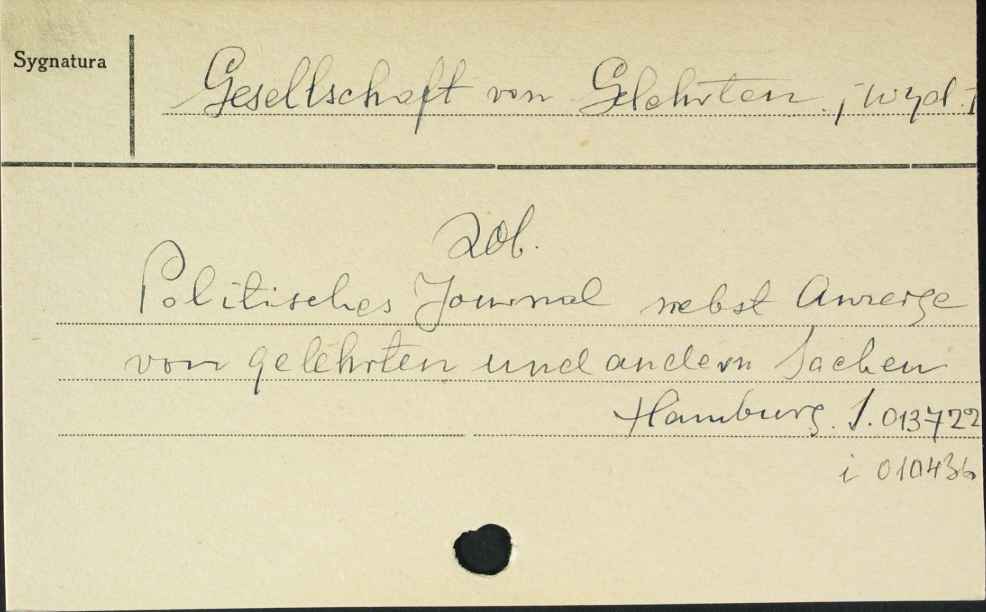 Sygnatura
Gesellschaft von Gelehrten. /wyd./
zob.
Politisches Journal nebst Anzeige
von gelehrten und andern Sachen
Hamburg. S. 013722
i 010436